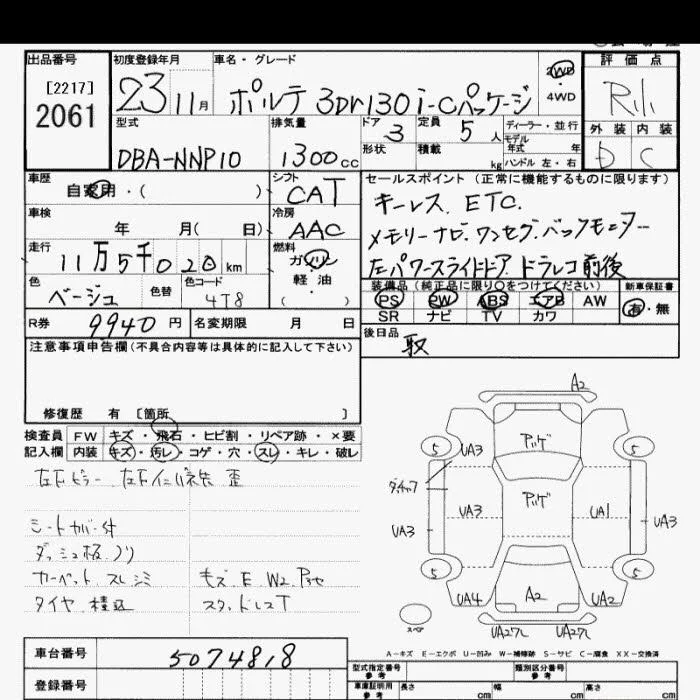 出品番号
[2217]
2061
初度登録年月
23 11月
車名・グレード
ポルテ 3Dr130i-Cパッケージ
2WD
4WD
評価点
外装 内装
D C
型式
DBA-NNP10
排気量
1300cc
ドア
3
形状
定員
5人
積載
kg
ディーラー・並行
モデル
年式 年
ハンドル 左・右
車歴
自家用・( )
シフト
CAT
車検
年 月( 日)
冷房
AAC
走行
11万5千020km
燃料
ガソリン
軽油
・( )
色
ベージュ
色替
色コード
4T8
R券
9940円
名変期限 月 日
セールスポイント(正常に機能するものに限ります)
キーレス. ETC.
メモリーナビ. ワンセグ. バックモニター
左パワースライドドア. ドラレコ前後
装備品(純正品に限り○をつけてください)
PS PW ABS エアB AW
SR ナビ TV カワ
新車保証書
有・無
後日品
取
注意事項申告欄(不具合内容等は具体的に記入して下さい)
修復歴 有 [箇所 ]
検査員
記入欄
FW キズ・飛石・ヒビ割・リペア跡・×要
内装 キズ・汚レ・コゲ・穴・スレ・キレ・破レ
シートカバー付
ダッシュ板ノリ
カーペット スレ シミ
タイヤ 積込
キズ E W2
A2
5
5
UA3
UA3
UA3
UA1
UA3
5
5
UA4
A2
UA2
スペア
A-キズ E-エクボ U-凹み W-補修跡 S-サビ C-腐食 XX-交換済
車台番号
5074818
登録番号
型式指定番号
参考
類別区分番号
参考
車庫証明用
参考
長さ cm
幅 cm
高さ cm